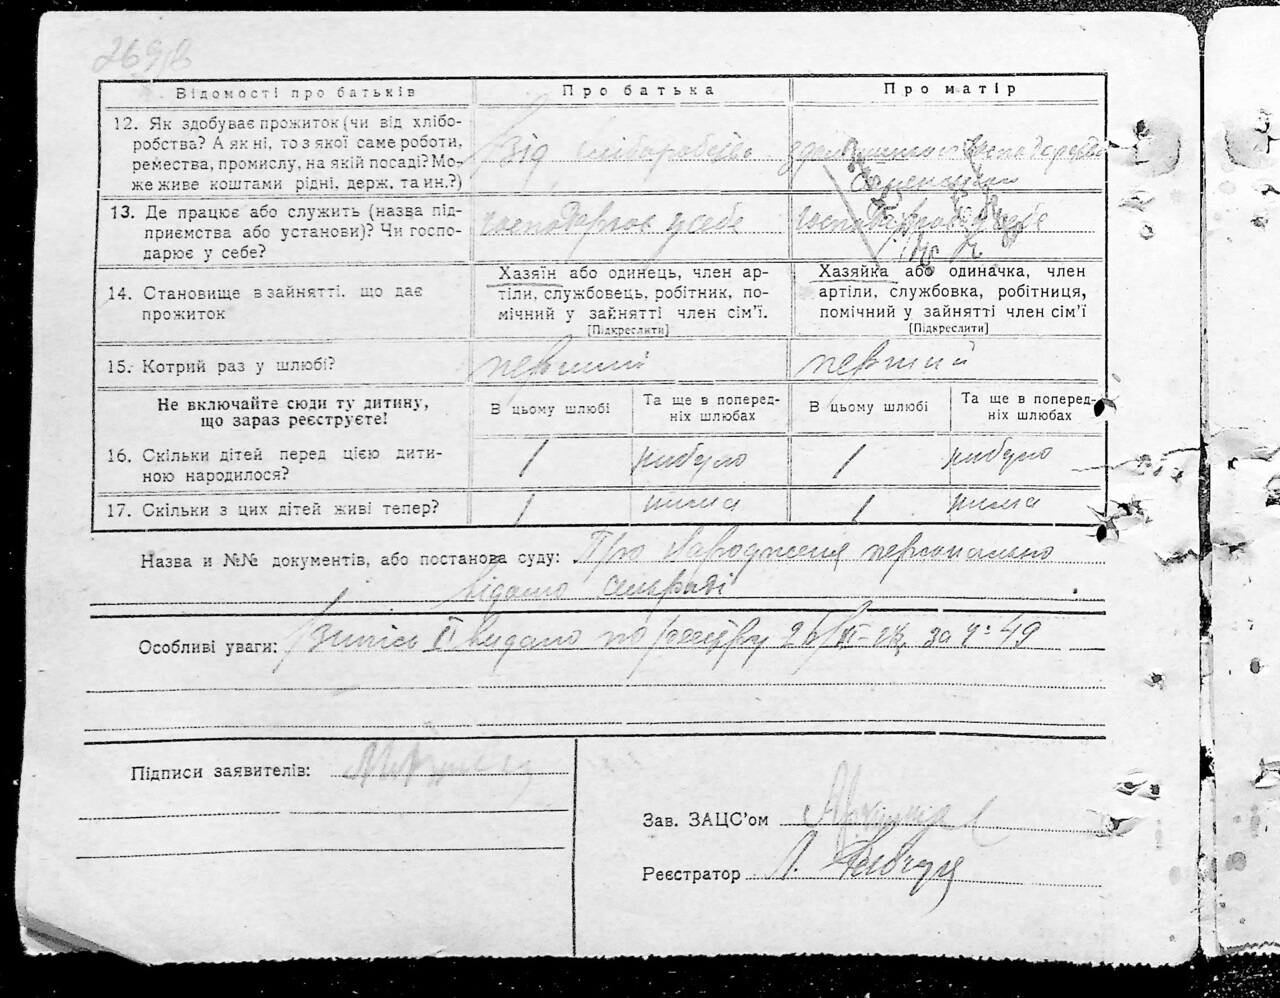 269/в
Відомості про батьків Про батька Про матір
12. Як здобуває прожиток (чи від хлібо-
робства? А як ні, то з якої саме роботи,
ремества, промислу, на якій посаді? Мо-
же живе коштами рідні, держ. та ин.?)
Від хліборобства
господарства
13. Де працює або служить (назва під-
приємства або установи)? Чи госпо-
дарює у себе?
господарює у себе
14. Становище в зайнятті, що дає
прожиток
Хазяїн або одинець, член ар-
тіли, службовець, робітник, по-
мічний у зайнятті член сім'ї.
[Підкреслити]
Хазяйка або одиначка, член
артіли, службовка, робітниця,
помічний у зайнятті член сім'ї
[Підкреслити]
15. Котрий раз у шлюбі? первший первший
Не включайте сюди ту дитину,
що зараз реєструєте!
В цьому шлюбі
Та ще в поперед-
ніх шлюбах
В цьому шлюбі
Та ще в поперед-
ніх шлюбах
16. Скільки дітей перед цією дити-
ною народилося?
1 небуло 1 небуло
17. Скільки з цих дітей живі тепер? 1 нима 1 нима
Назва и №№ документів, або постанова суду: Про народження персонально
відомо сільраді
Особливі уваги: Випись II видано по реєстру за № 49
Підписи заявителів:
Зав. ЗАЦС'ом
Реєстратор Л.